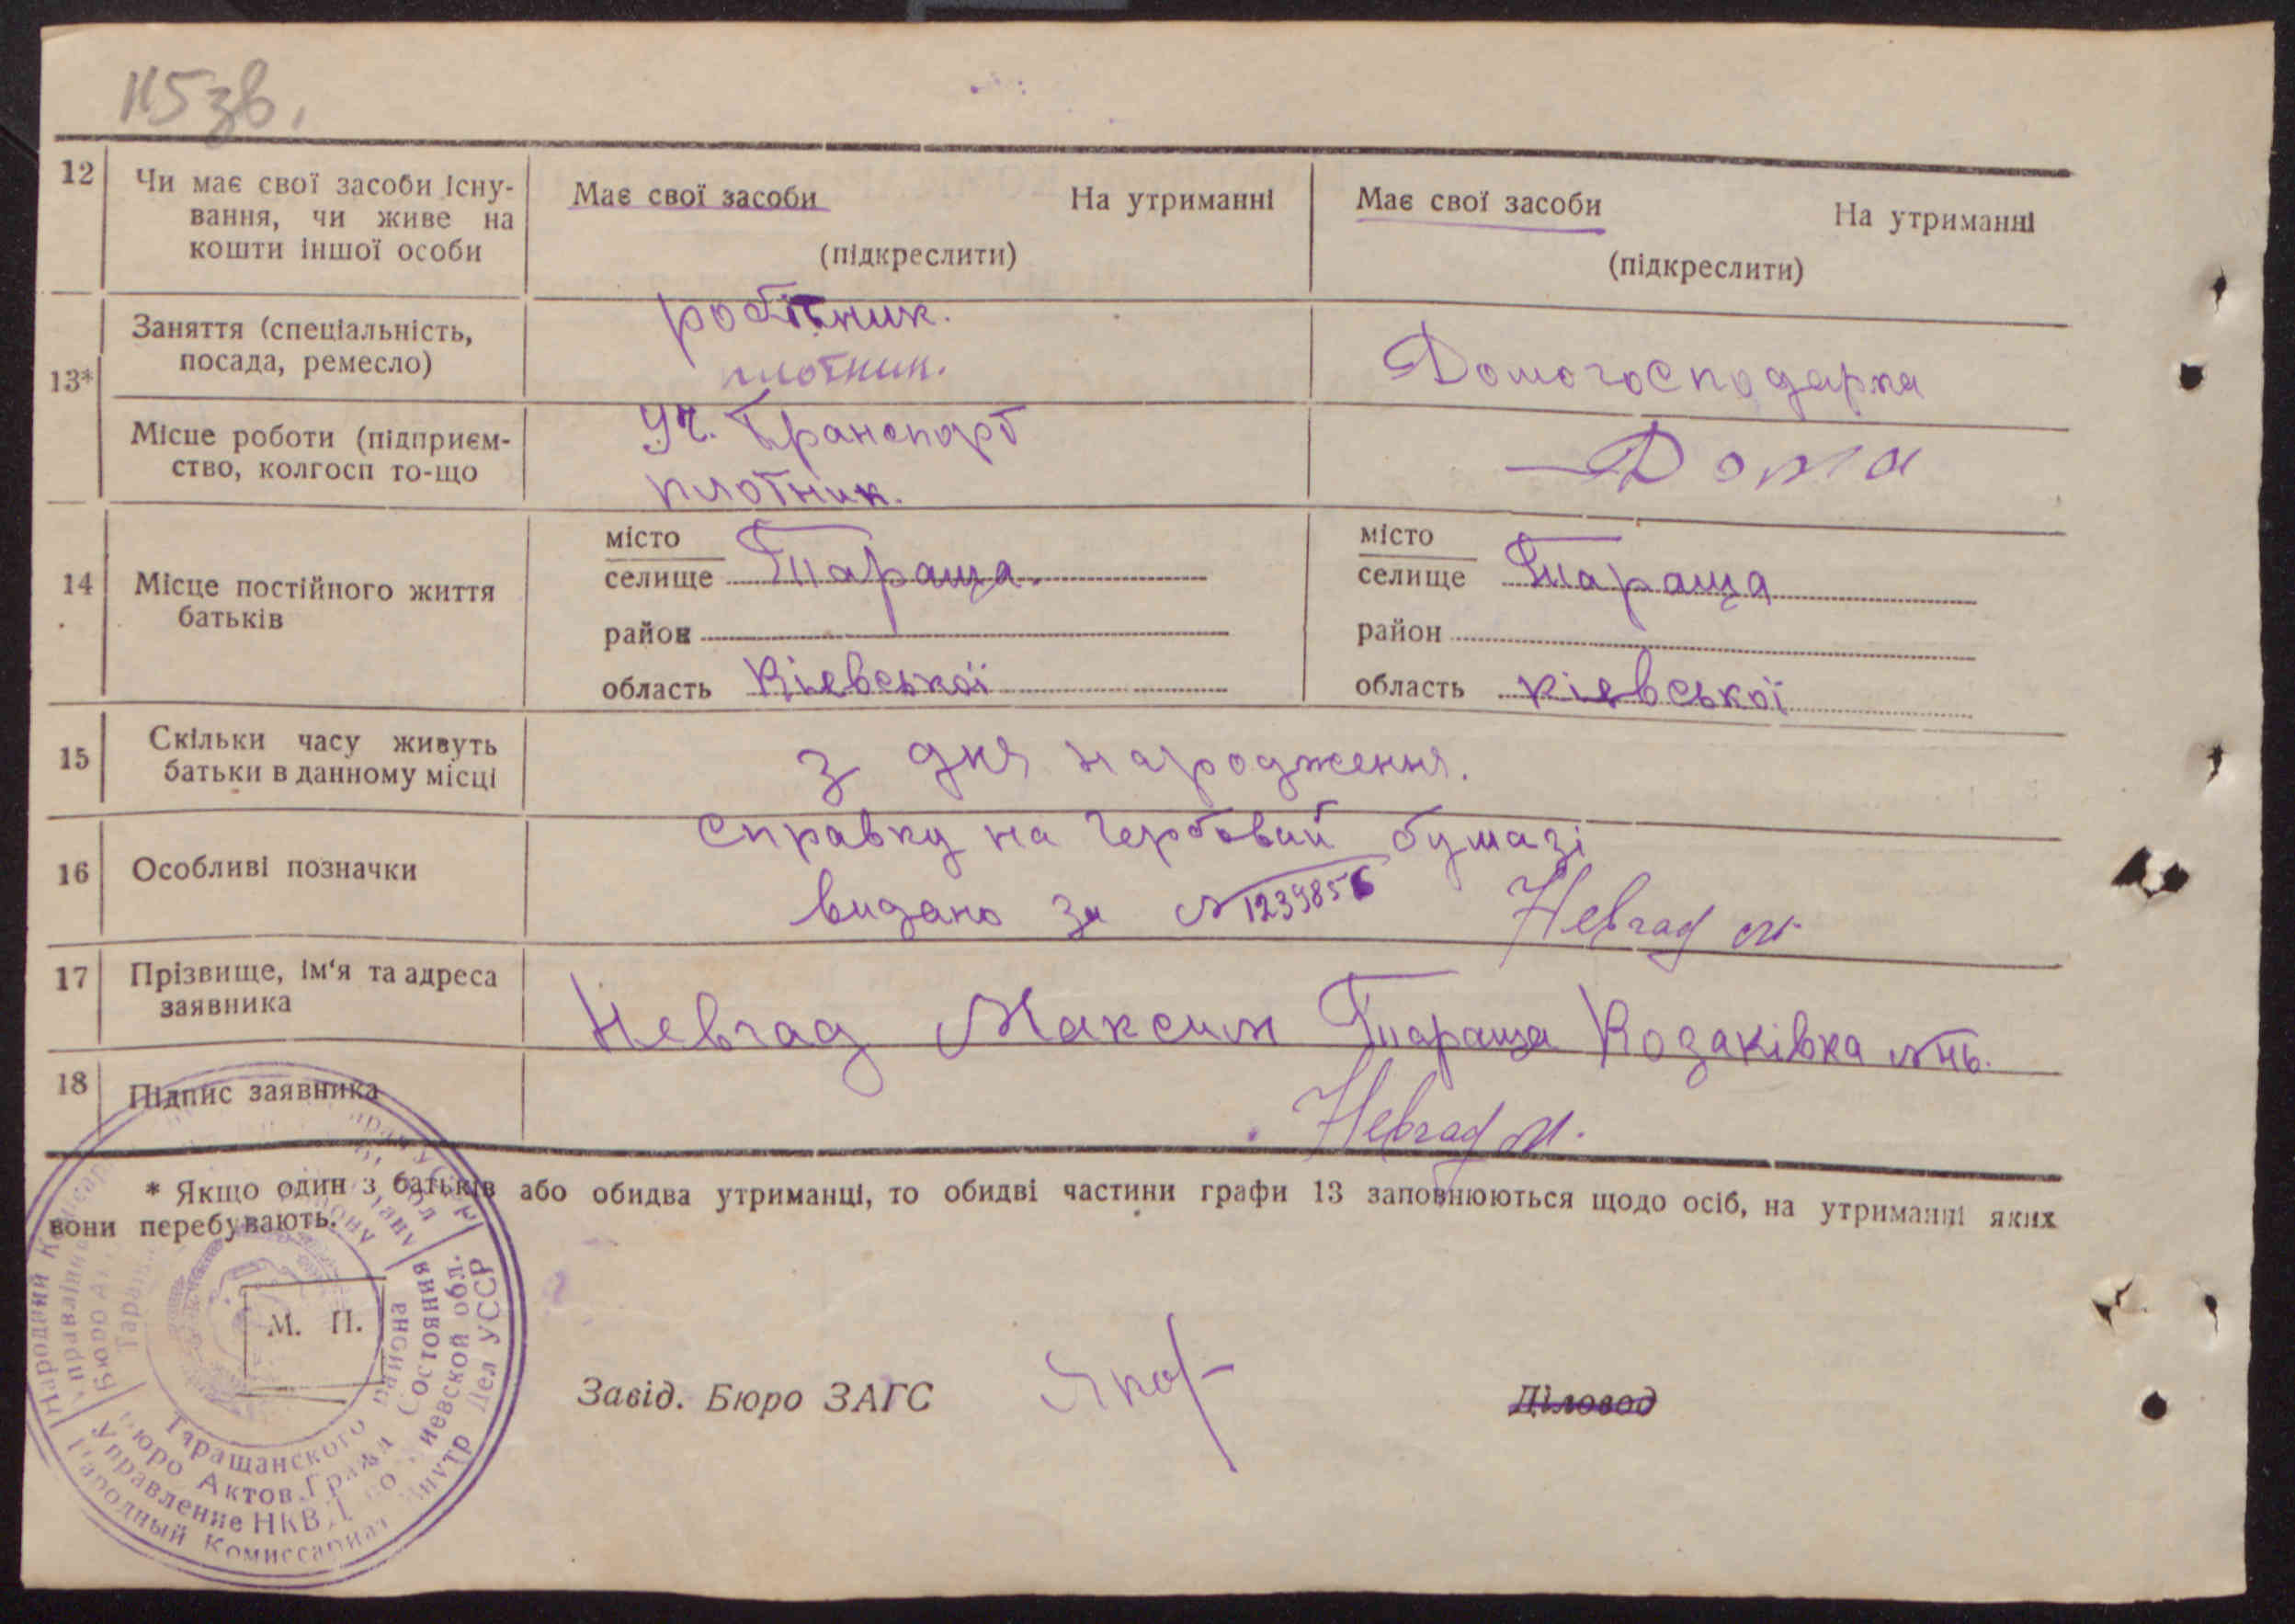 115 зв.
12
Чи має свої засоби існу-
вання, чи живе на
кошти іншої особи
Має свої засоби На утриманні
(підкреслити)
Має свої засоби На утриманні
(підкреслити)
13*
Заняття (спеціальність,
посада, ремесло)
робітник.
плотник.
Домогосподарка
Місце роботи (підприєм-
ство, колгосп то-що
Уч. Транспорт
плотник.
Дома
14
Місце постійного життя
батьків
місто
селище Тараща.
район
область Кіевської
місто
селище Тараща
район
область кіевської
15
Скільки часу живуть
батьки в данному місці
з дня народження.
16
Особливі позначки
справку на гербовий бумазі
видано за № 1239856 Невгад М.
17
Прізвище, ім'я та адреса
заявника
Невгад Максим Тараща Козаківка
18
Підпис заявника
Невгад М.
* Якщо один з батьків або обидва утриманці, то обидві частини графи 13 заповнюються щодо осіб, на утриманні яких
вони перебувають.
М. П.
Завід. Бюро ЗАГС
Діловод
Таращанского района
Бюро Актов Гражд Состояния
Управление НКВД по Киевской обл.
Народный Комиссариат Внутр Дел УССР